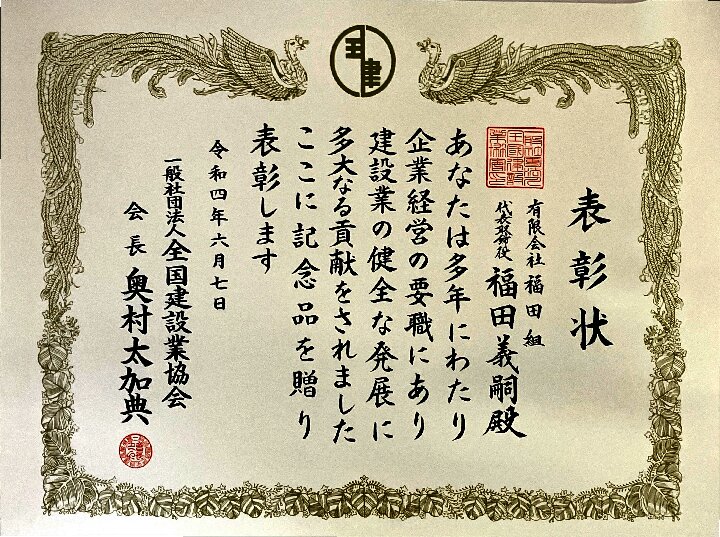 表彰状
有限会社 福田組
代表取締役 福田義嗣殿
あなたは多年にわたり
企業経営の要職にあり
建設業の健全な発展に
多大なる貢献をされました
ここに記念品を贈り
表彰します
令和四年六月七日
一般社団法人全国建設業協会
会長 奥村太加典